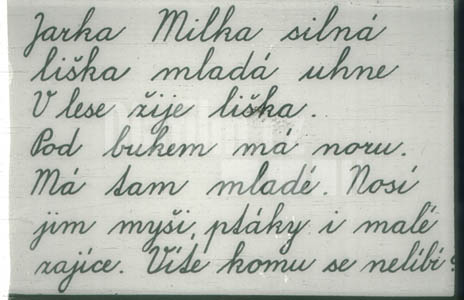 Jarka Milka silná
liška mladá uhne
V lese žije liška.
Pod bukem má noru.
Má tam mladé. Nosí
jim myši, ptáky i malé
zajíce. Víte komu se nelíbí?